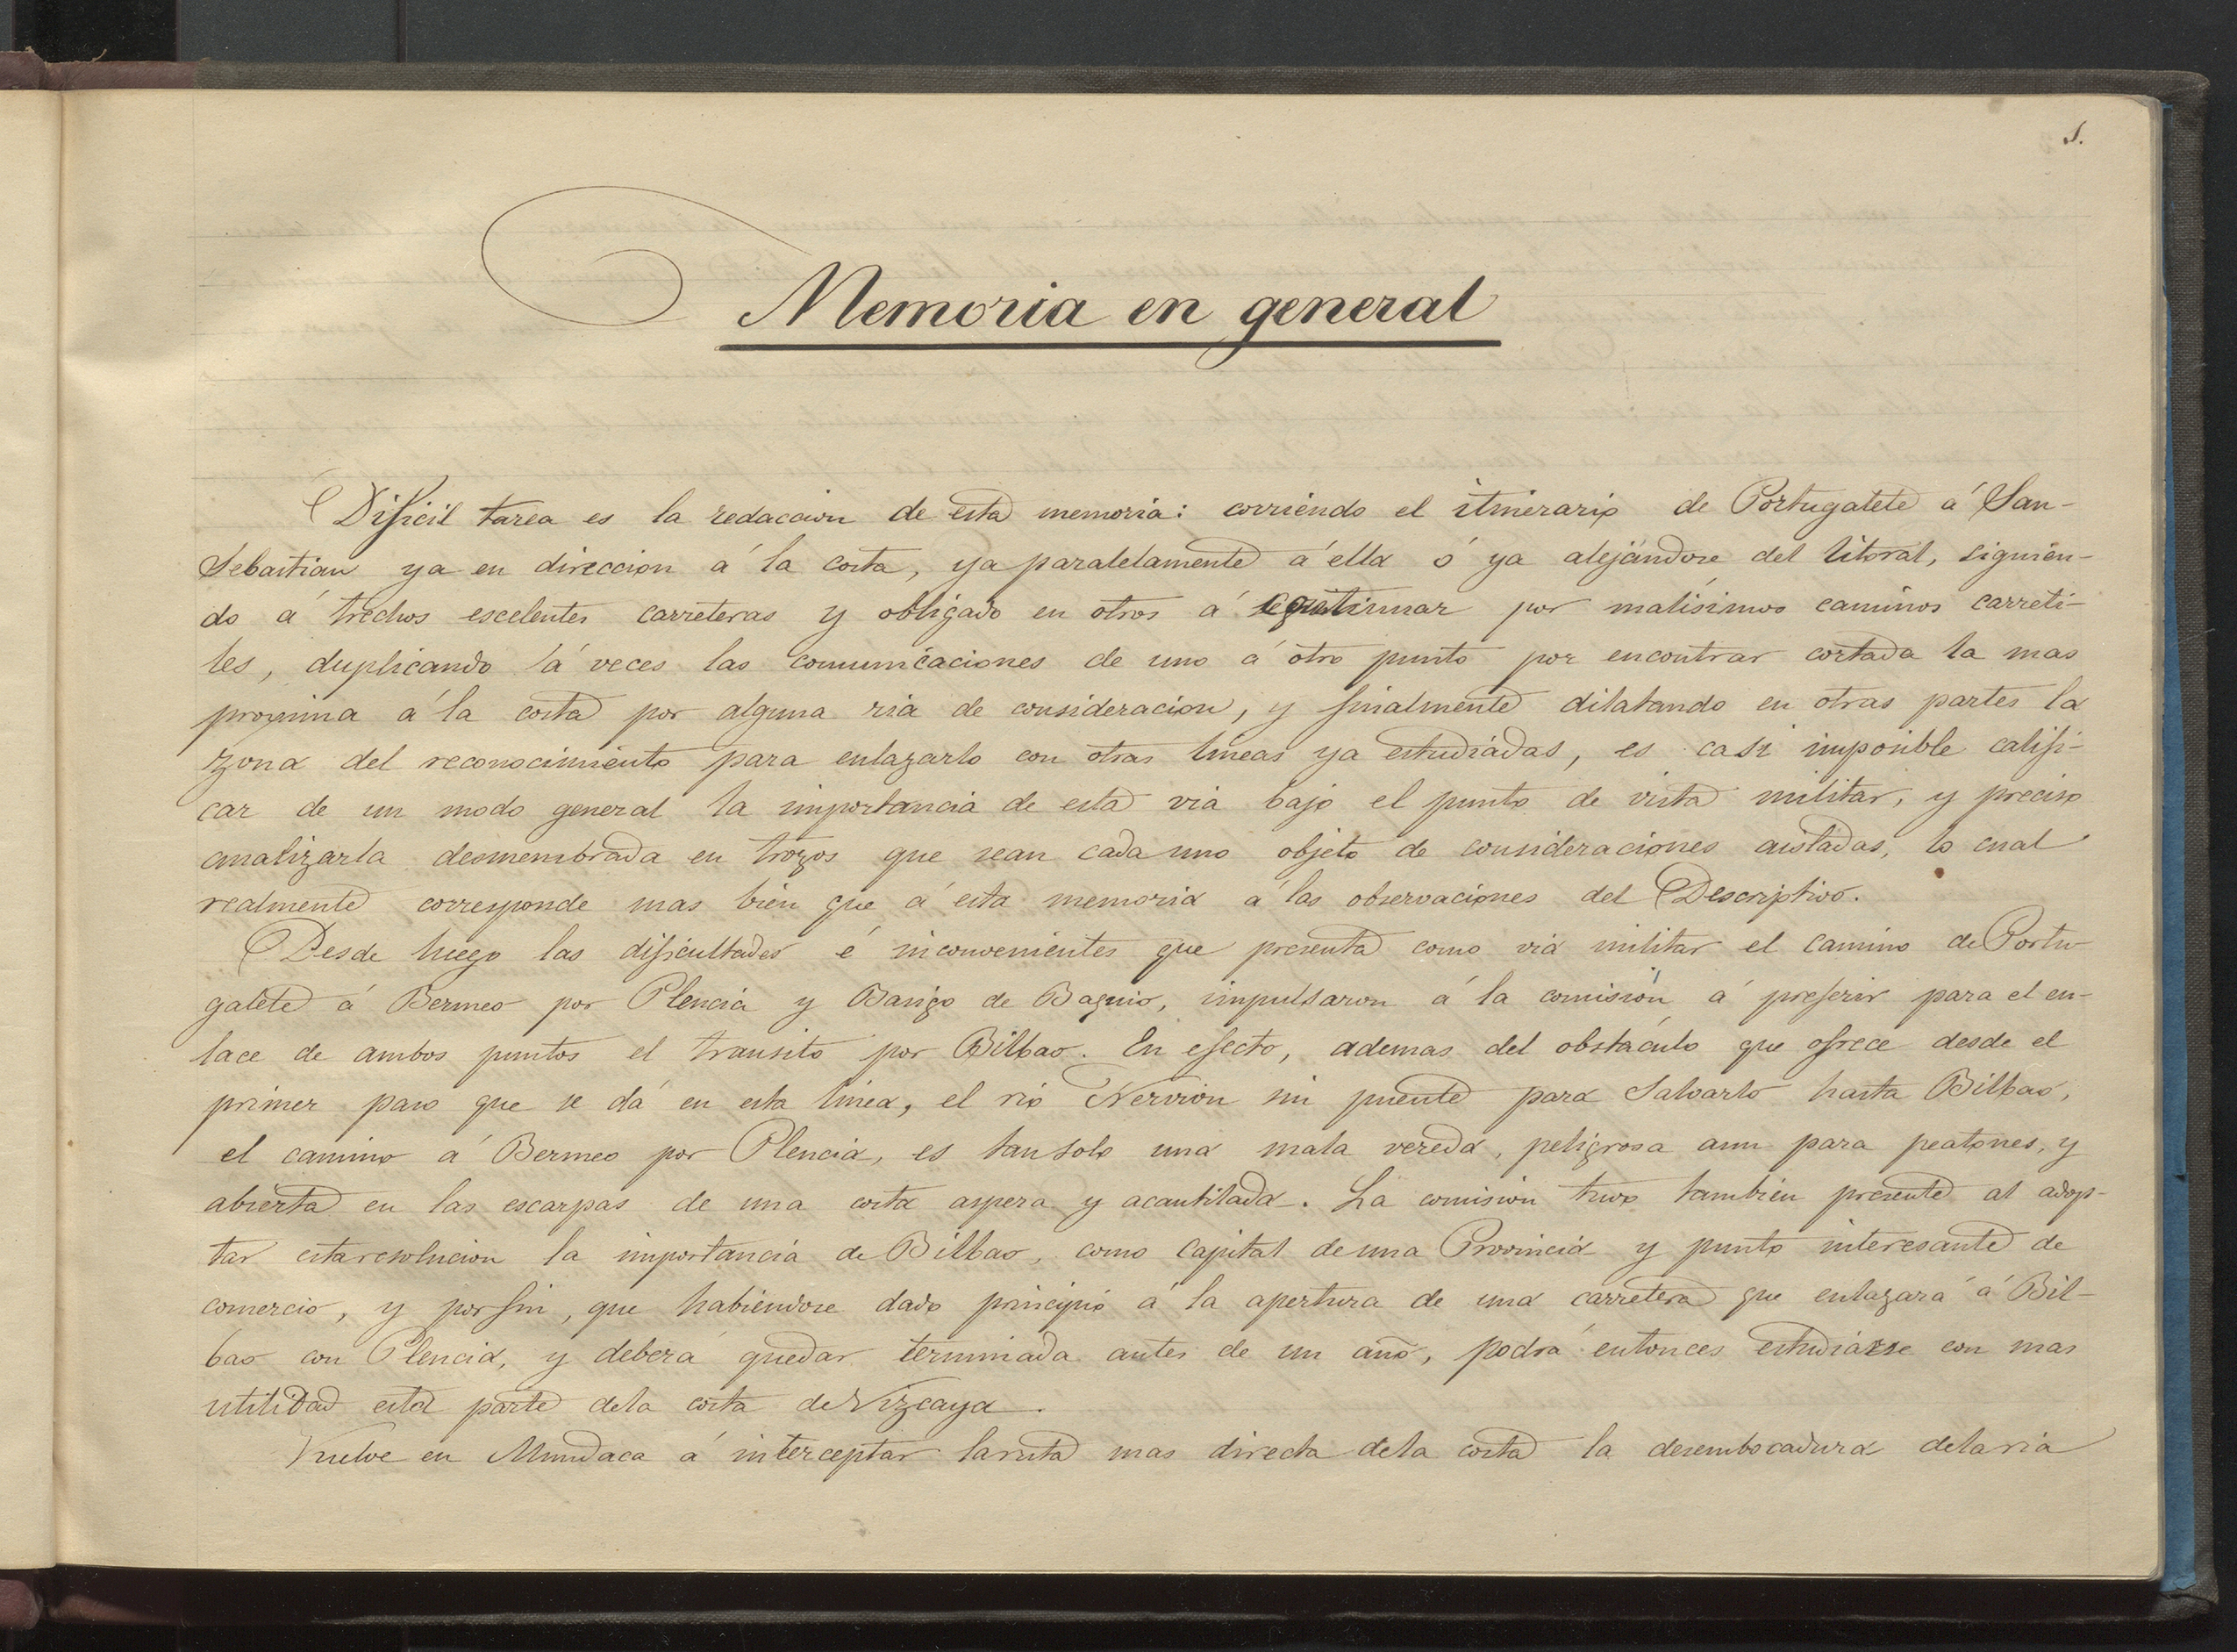 1.
Memoria en general
Dificil tarea es la redaccion de esta memoria: corriendo el itinerario de Portugalete á San-
Sebastian ya en direccion á la costa, ya paralelamente á ella ó ya alejándose del litoral, siguien-
do á trechos escelentes carreteras y obligado en otros á continuar por malísimos caminos carreti-
les, duplicando á veces las comunicaciones de uno á otro punto por encontrar cortada la mas
proxima á la costa por alguna ria de consideracion, y finalmente dilatando en otras partes la
zona del reconocimiento para enlazarlo con otras lineas ya estudiadas, es casi imposible califi-
car de un modo general la importancia de esta via bajo el punto de vista militar, y preciso
analizarla desmembrada en trozos que sean cada uno objeto de consideraciones aisladas, lo cual
realmente corresponde mas bien que á esta memoria á las observaciones del Descriptivo.
Desde luego las dificultades é inconvenientes que presenta como via militar el camino de Portu-
galete á Bermeo por Plencia y Barigo de Baquio, impulsaron á la comision á preferir para el en-
lace de ambos puntos el transito por Bilbao. En efecto, ademas del obstáculo que ofrece desde el
primer paso que se dá en esta linea, el rio Nervion sin puente para salvarlo hasta Bilbao,
el camino á Bermeo por Plencia, es tan solo una mala vereda, peligrosa aun para peatones, y
abierta en las escarpas de una costa aspera y acantilada. La comision tuvo tambien presente al adop-
tar esta resolucion la importancia de Bilbao, como capital de una Provincia y punto interesante de
comercio, y por fin, que habiendose dado principio á la apertura de una carretera que enlazará á Bil-
bao con Plencia, y deberá quedar terminada antes de un año, podrá entonces estudiarse con mas
utilidad esta parte de la costa de Vizcaya.
Vuelve en Mundaca á interceptar la ruta mas directa de la costa la desembocadura de la ria